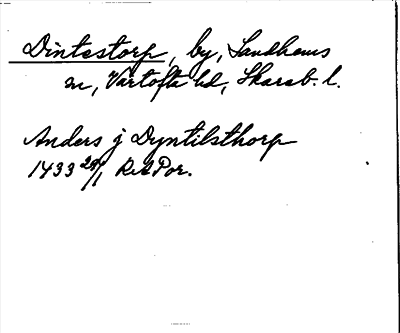 Dintestorp, by, Sandhems
sn, Vartofta hd, Skarab. l.
Anders j Dyntilsthorp
1433 29/1 RAPor.